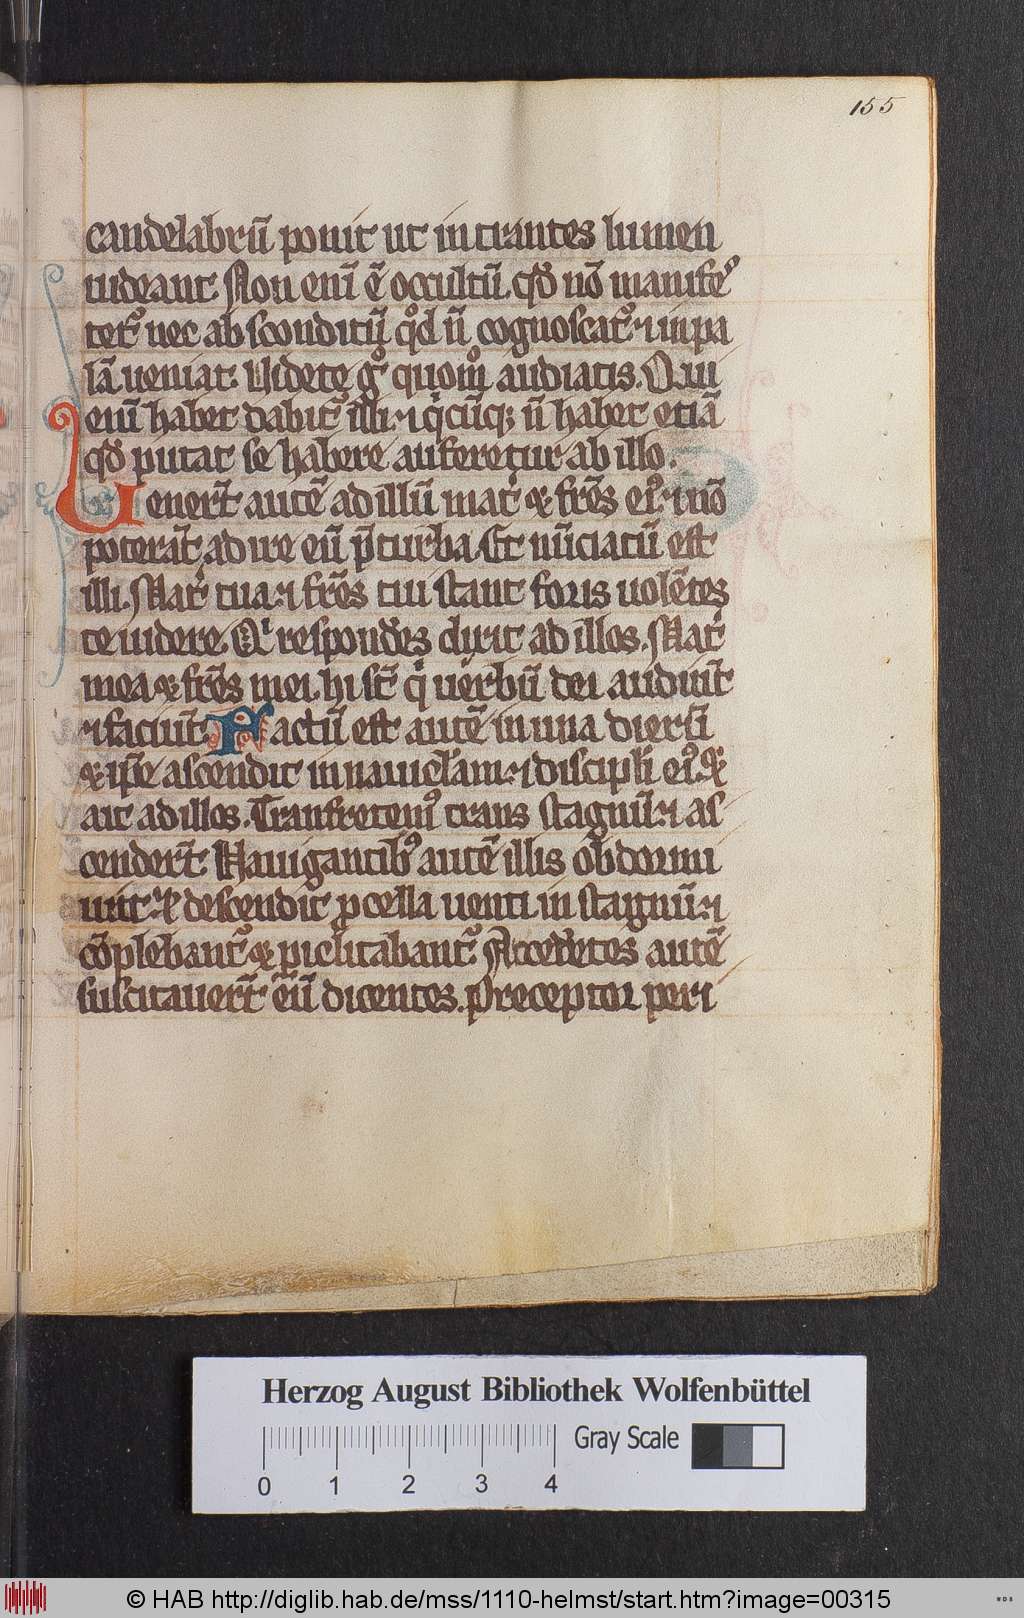 155
candelabrū ponit ut intrantes lumen
uideant. Non enī ē occultū. qd̄ nō manifes
tet᷑ nec absconditū qd̄ n̄ cognoscat᷑ ⁊ in pa
lā ueniat. Videte gͦ quomͦ audiatis. Qui
enī habet dabit᷑ illi. ⁊ qͥcūq; n̄ habet etiā
qd̄ putat se habere auferetur ab illo.
Uenert̄ autē ad illū mat᷑ & fr̄es eiꝰ. ⁊ nō
poterāt adire eū p̄ turba. Et nūciatū est
illi. Mat᷑ tua. ⁊ fr̄es tui stant foris uolētes
te uidere. Qͥ respondēs dixit ad illos. Mat᷑
mea & fr̄es mei. hi st̄ qͥ uerbū dei audiūt
⁊ faciūt. Factū est autē in una dierū
& ip̄e ascendit in nauiclam. ⁊ discipli eiꝰ. &
ait ad illos. Transfretemꝰ trans stagnū. ⁊ as
cendert̄. Nauigantibꝰ autē illis obdormi
uit. & descendit ꝓcella uenti in stagnū. ⁊
cōplebant᷑ & piclitabant᷑. Accedētes autē
suscitauert̄ eū dicentes. Preceptor peri
Herzog August Bibliothek Wolfenbüttel
Gray Scale
0 1 2 3 4
© HAB http://diglib.hab.de/mss/1110-helmst/start.htm?image=00315